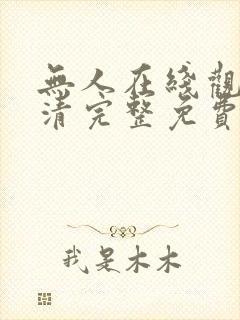 無人在綫觀
清完整免費
我是木木